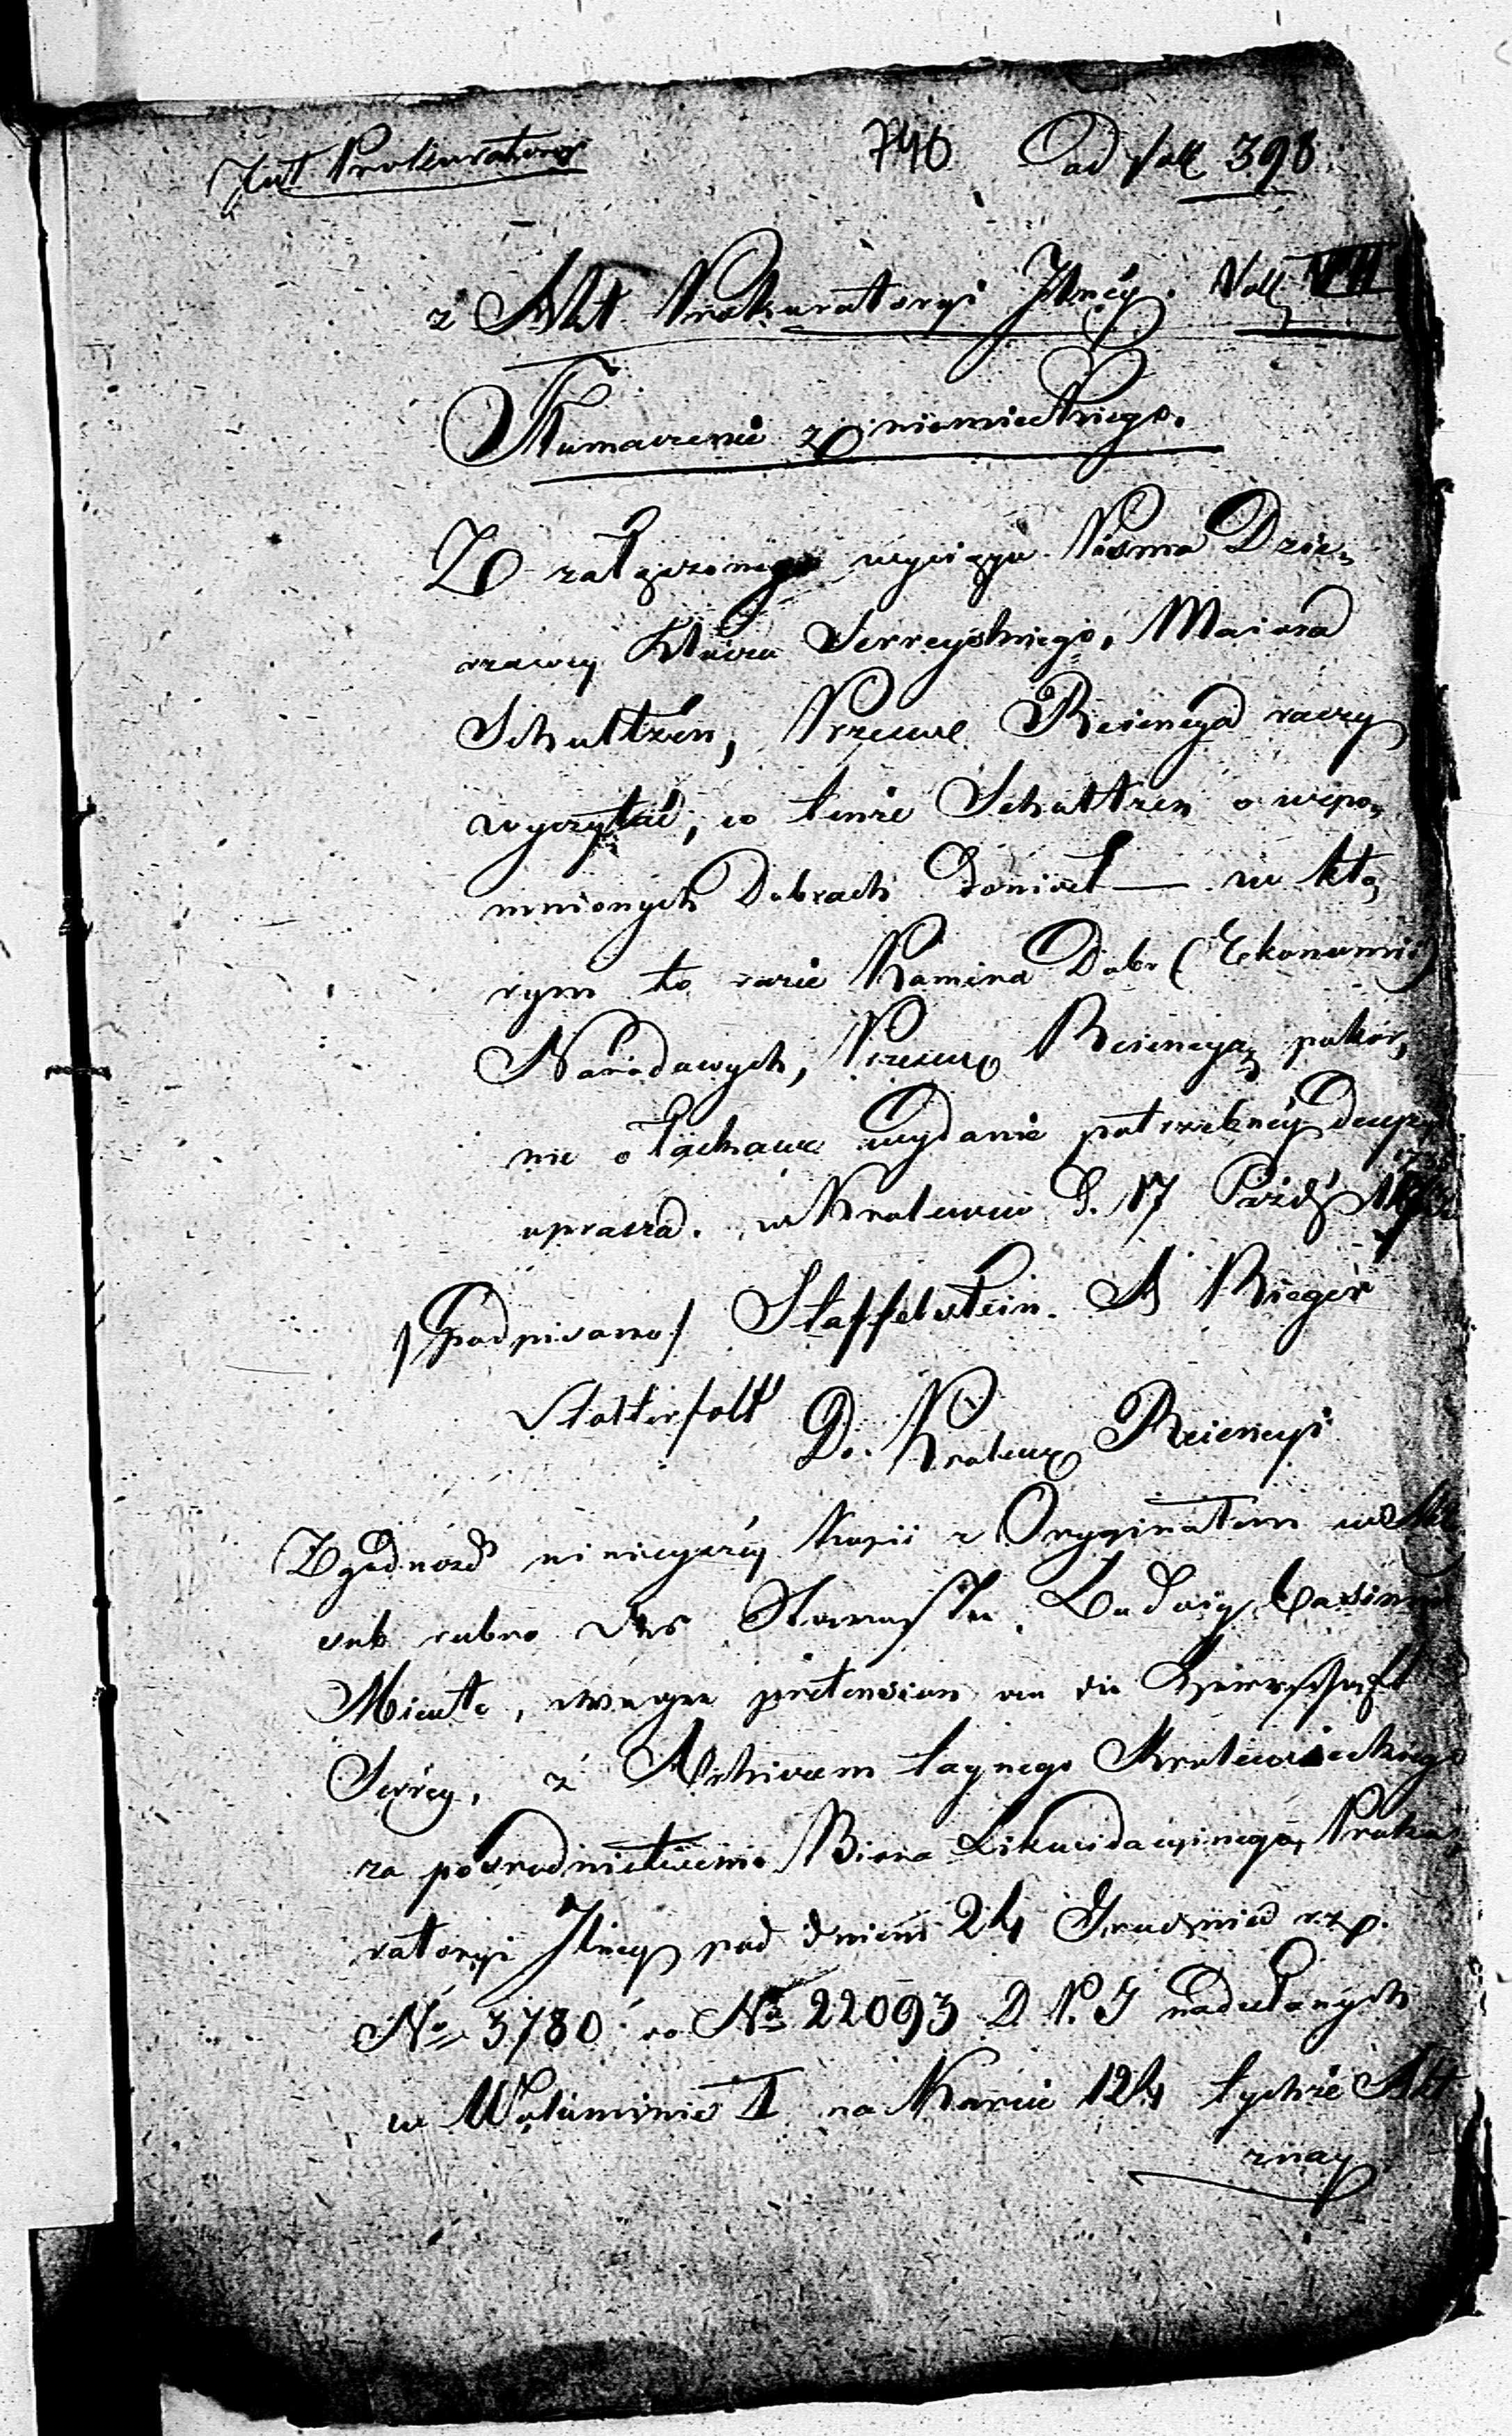 Prokuratorya 746 ad Vol 398
z Akt Prokuratoryi Jlney. Vol VII
Tłumaczenie z niemieckiego.
Z załączonego wyciągu Pisma Dzier„
rzawcy Klucza Serreyskiego, Maiora
Schultzen, Prześwe Rejencya raczy
wyczytać, co tenże Schultzen o wspo„
mnionych Dobrach doniosł — w któ„
rym to razie Kamera Dobr (Ekonomii)
Narodowych, Prześwe Rejencyą pokor„
nie o łaskawe wydanie potrzebnéy decyzyi
uprasza. w Krolewcu d. 17 Paźdz
/podpisano/ Staffelstein. Rieger
Do Krolew Rejencyi
Zgodność ninieyszéy kopii z Oryginałem w Akt
sub rubro des Starosten Ludwig Casimir
, wegen pretension an die Herrschaft
Serrey, z Archivum taynego Krolewieckiego
za pośrednictwem Biora Likwidacyinego, Proku„
ratoryi Jlney pod dniem 24 Grudnia r. z.
No 3780 do No 22093 D. P. J nadesłanych
w Woluminie I na karcie 124 tychże Akt
znay